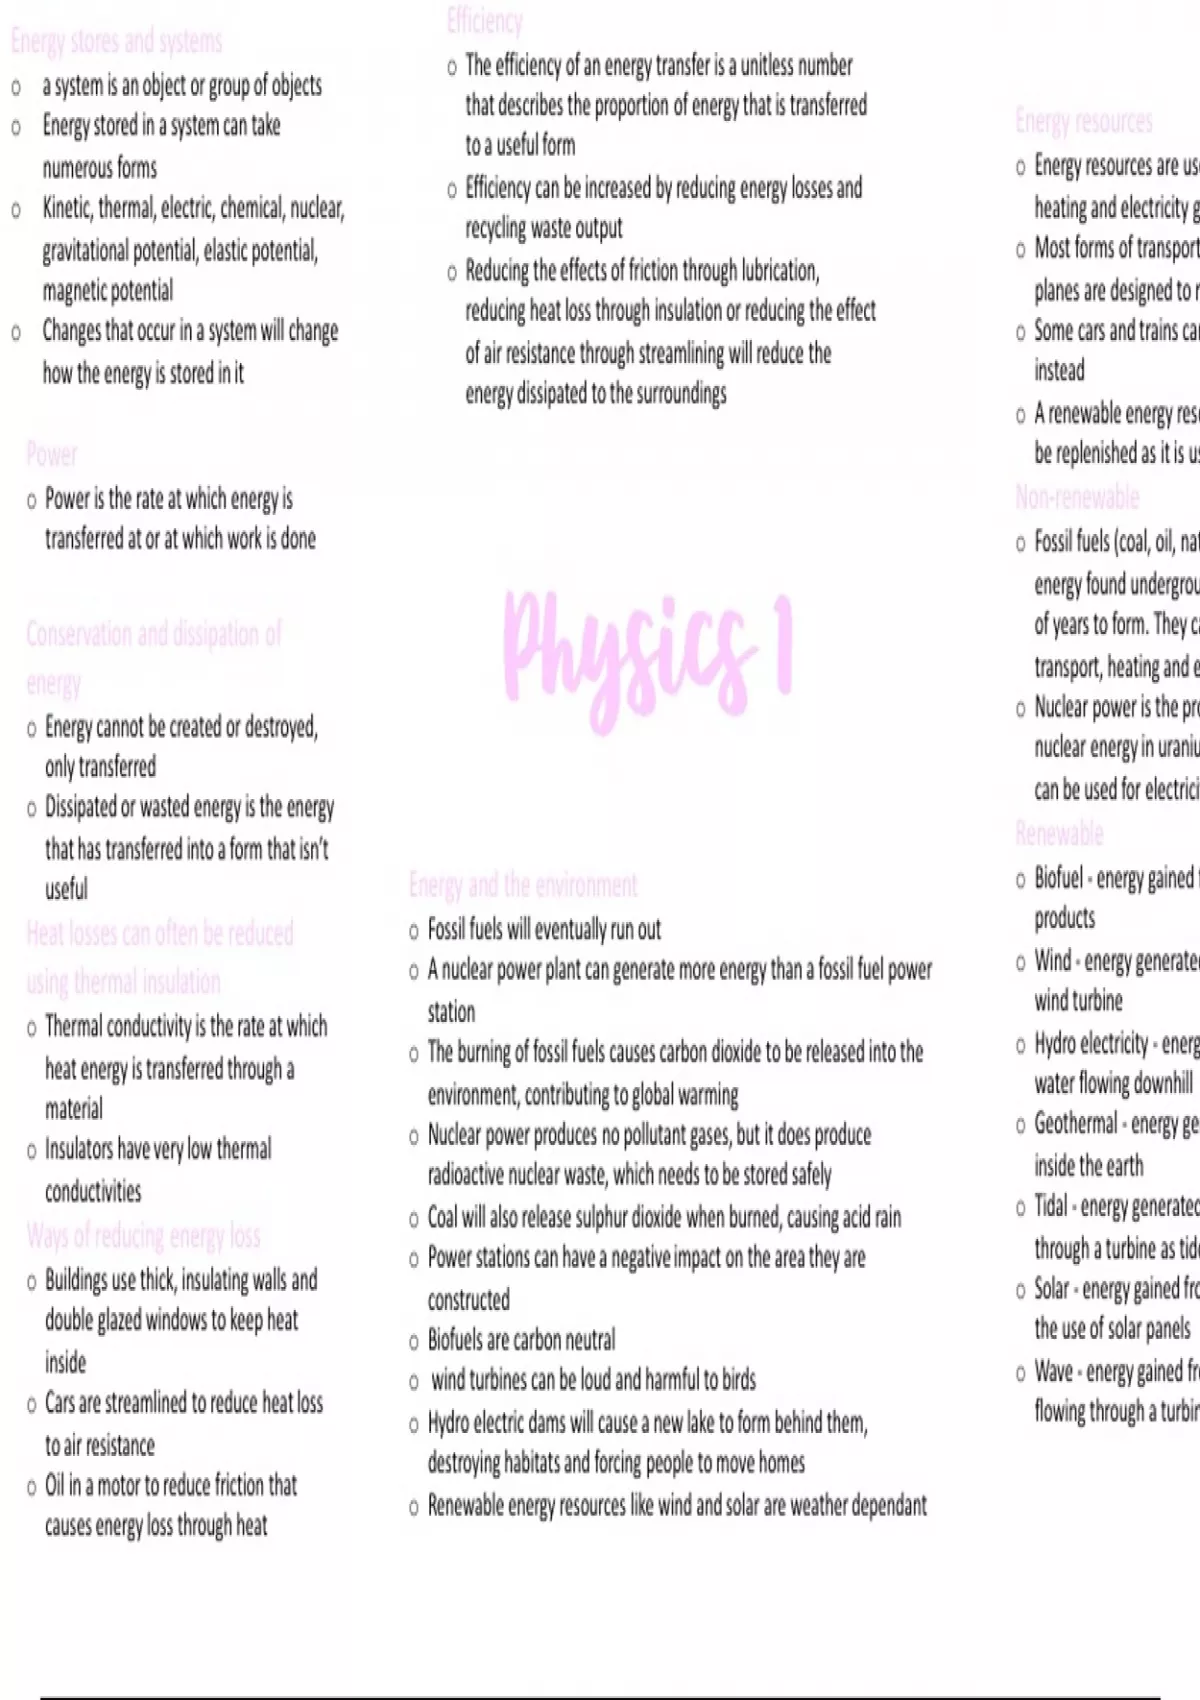 Energy stores and systems
o a system is an object or group of objects
o Energy stored in a system can take
numerous forms
o Kinetic, thermal, electric, chemical, nuclear,
gravitational potential, elastic potential,
magnetic potential
o Changes that occur in a system will change
how the energy is stored in it
Power
o Power is the rate at which energy is
transferred at or at which work is done
Conservation and dissipation of
energy
o Energy cannot be created or destroyed,
only transferred
o Dissipated or wasted energy is the energy
that has transferred into a form that isn't
useful
Heat losses can often be reduced
using thermal insulation
o Thermal conductivity is the rate at which
heat energy is transferred through a
material
o Insulators have very low thermal
conductivities
Ways of reducing energy loss
o Buildings use thick, insulating walls and
double glazed windows to keep heat
inside
o Cars are streamlined to reduce heat loss
to air resistance
o Oil in a motor to reduce friction that
causes energy loss through heat
Efficiency
o The efficiency of an energy transfer is a unitless number
that describes the proportion of energy that is transferred
to a useful form
o Efficiency can be increased by reducing energy losses and
recycling waste output
o Reducing the effects of friction through lubrication,
reducing heat loss through insulation or reducing the effect
of air resistance through streamlining will reduce the
energy dissipated to the surroundings
Physics 1
Energy and the environment
o Fossil fuels will eventually run out
o A nuclear power plant can generate more energy than a fossil fuel power
station
o The burning of fossil fuels causes carbon dioxide to be released into the
environment, contributing to global warming
o Nuclear power produces no pollutant gases, but it does produce
radioactive nuclear waste, which needs to be stored safely
o Coal will also release sulphur dioxide when burned, causing acid rain
o Power stations can have a negative impact on the area they are
constructed
o Biofuels are carbon neutral
o wind turbines can be loud and harmful to birds
o Hydro electric dams will cause a new lake to form behind them,
destroying habitats and forcing people to move homes
o Renewable energy resources like wind and solar are weather dependant
Energy resources
o Energy resources are
heating and electricity
o Most forms of transport
planes are designed to
o Some cars and trains
instead
o A renewable energy
be replenished as it is
Non-renewable
o Fossil fuels (coal, oil,
energy found
of years to form. They
transport, heating and
o Nuclear power is the
nuclear energy in
can be used for
Renewable
o Biofuel - energy gained
products
o Wind - energy
wind turbine
o Hydro electricity -
water flowing downhill
o Geothermal - energy
inside the earth
o Tidal - energy
through a turbine as
o Solar - energy gained
the use of solar panels
o Wave - energy gained
flowing through a